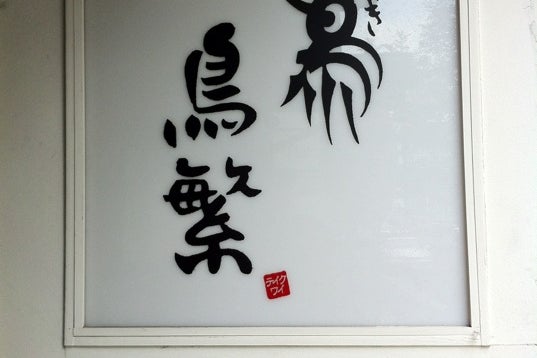 き
鳥繁
テイクワイ